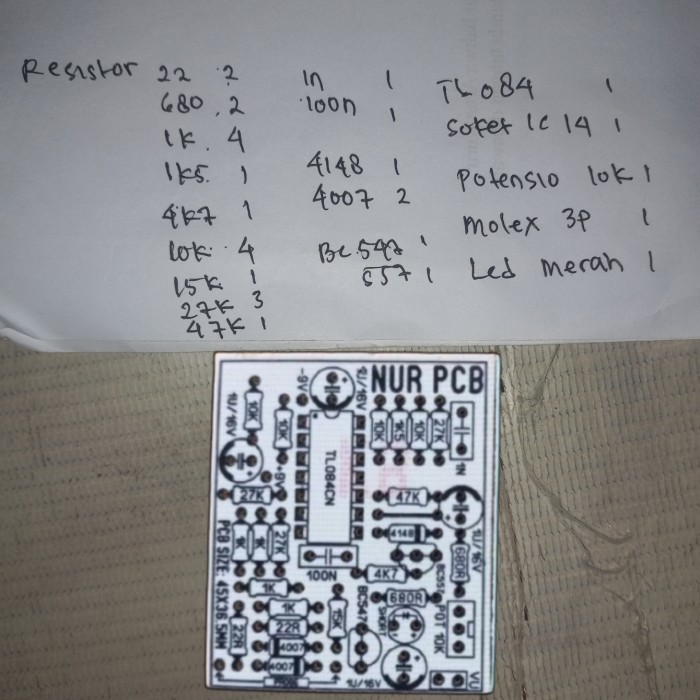 Resistor 22 2
680 2
1K. 4
1K5. 1
4K7 1
10K 4
15K 1
27K 3
47K 1
1n 1
100n 1
4148 1
4007 2
BC 547 1
557 1
TL084 1
soket IC 14 1
Potensio 10K 1
Molex 3p 1
Led merah 1
NUR PCB
-9V
1U/16V
1U/16V
10K
10K
TL084CN
10K
1K5
10K
27K
1N
+9V
27K
47K
1K
1K
27K
4148
1U/16V
680R
100N
4K7
BC557
PCB SIZE: 45X36.5MM
1K
1K
22R
22R
15K
BC547
680R
SHORT
POT 10K
4007
4007
1U/16V
VU